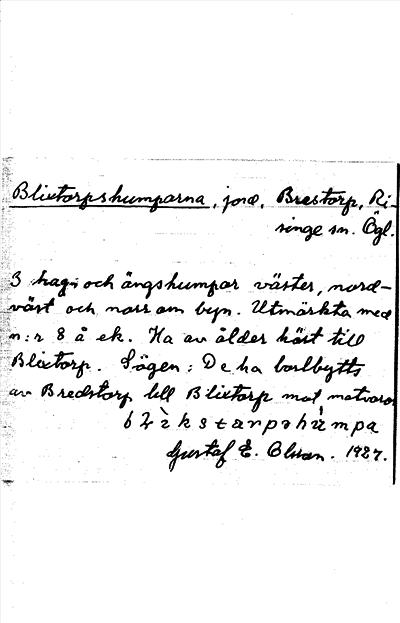 Blixtorpshumparna, jord, Brestorp, Ri-
singe sn. Ögl.
3 hag- och ängshumpar väster, nord-
väst och norr om byn. Utmärkta med
n:r 8 å ek. Ha av ålder hört till
Blixtorp. Sägen: De ha bortbytts
av Bredstorp till Blixtorp mot matvaror
Gustaf E. Olsson. 1927.